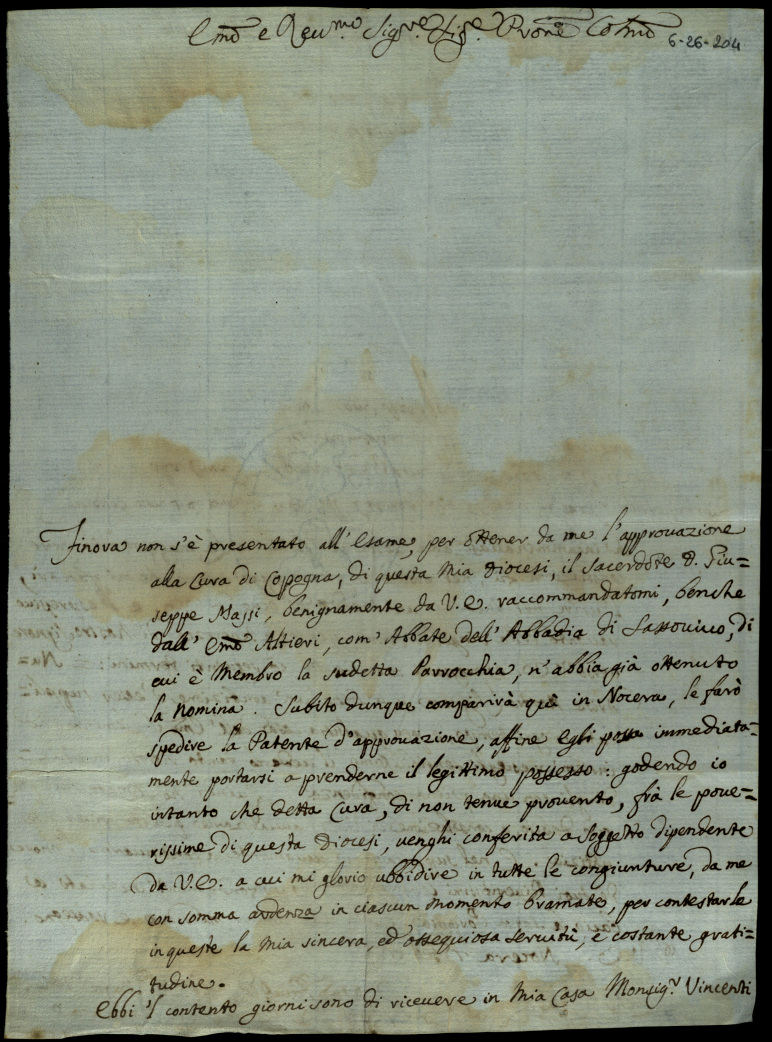 Emo e Reu.mo Sig.re Sig.re Pron.e Colmo
6-26-204
Finora non s'è presentato all'Esame, per ottener da me l'approvazione
alla Cura di Copogna, di questa Mia Diocesi, il Sacerdote D. Giu=
seppe Massi, benignamente da V. E. raccommandatomi, benche
dall' Emo Altieri, com' Abbate dell' Abbadia di Sassouiuo, di
cui è Membro la sudetta Parrocchia, n' abbia già ottenuto
la Nomina. Subito dunque comparirà quì in Nocera, le farò
spedire la Patente d'approuazione, affine egli possa immediata=
mente portarsi a prenderne il legittimo possesso: godendo io
intanto che detta Cura, di non tenue prouento, frà le poue=
rissime di questa Diocesi, uenghi conferita a Soggetto dipendente
da V. E. a cui mi glorio ubbidire in tutte le congiunture, da me
con somma ardenza in ciascun momento bramate, per contestarle
in queste la Mia sincera, ed ossequiosa seruitù, e costante grati=
tudine.
Ebbi 'l contento giorni sono di riceuere in Mia Casa Monsig.r Vincenti